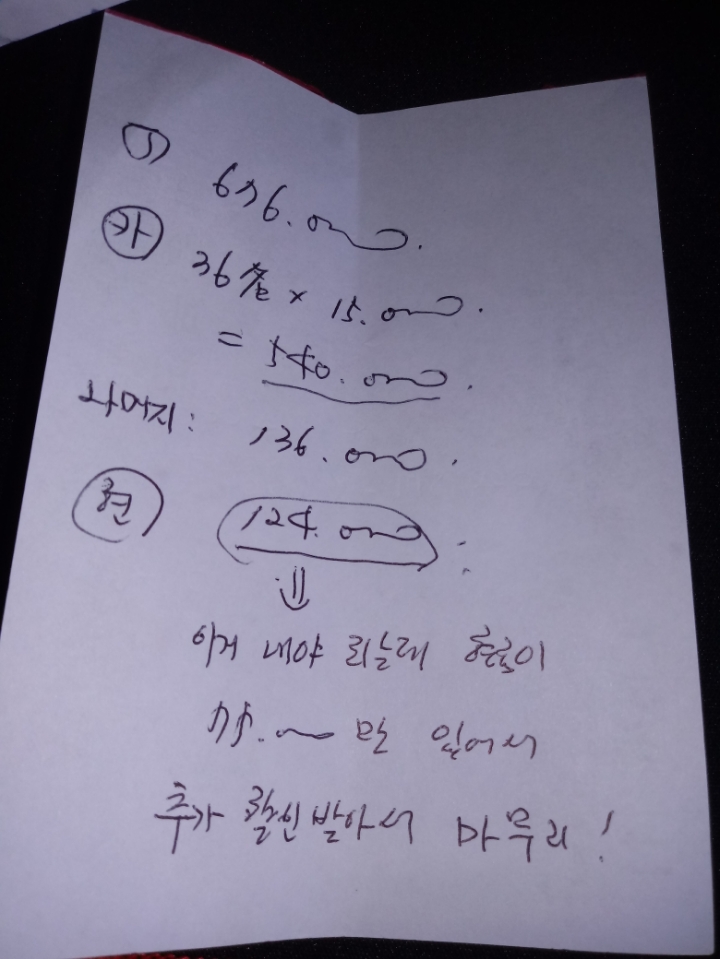 676.000.
카
36줄 × 15.000.
= 540.000.
나머지: 136.000.
현 124.000
⇓
이거 내야 되는데 현금이
75.000 만 있어서
추가 할인받아서 마무리!